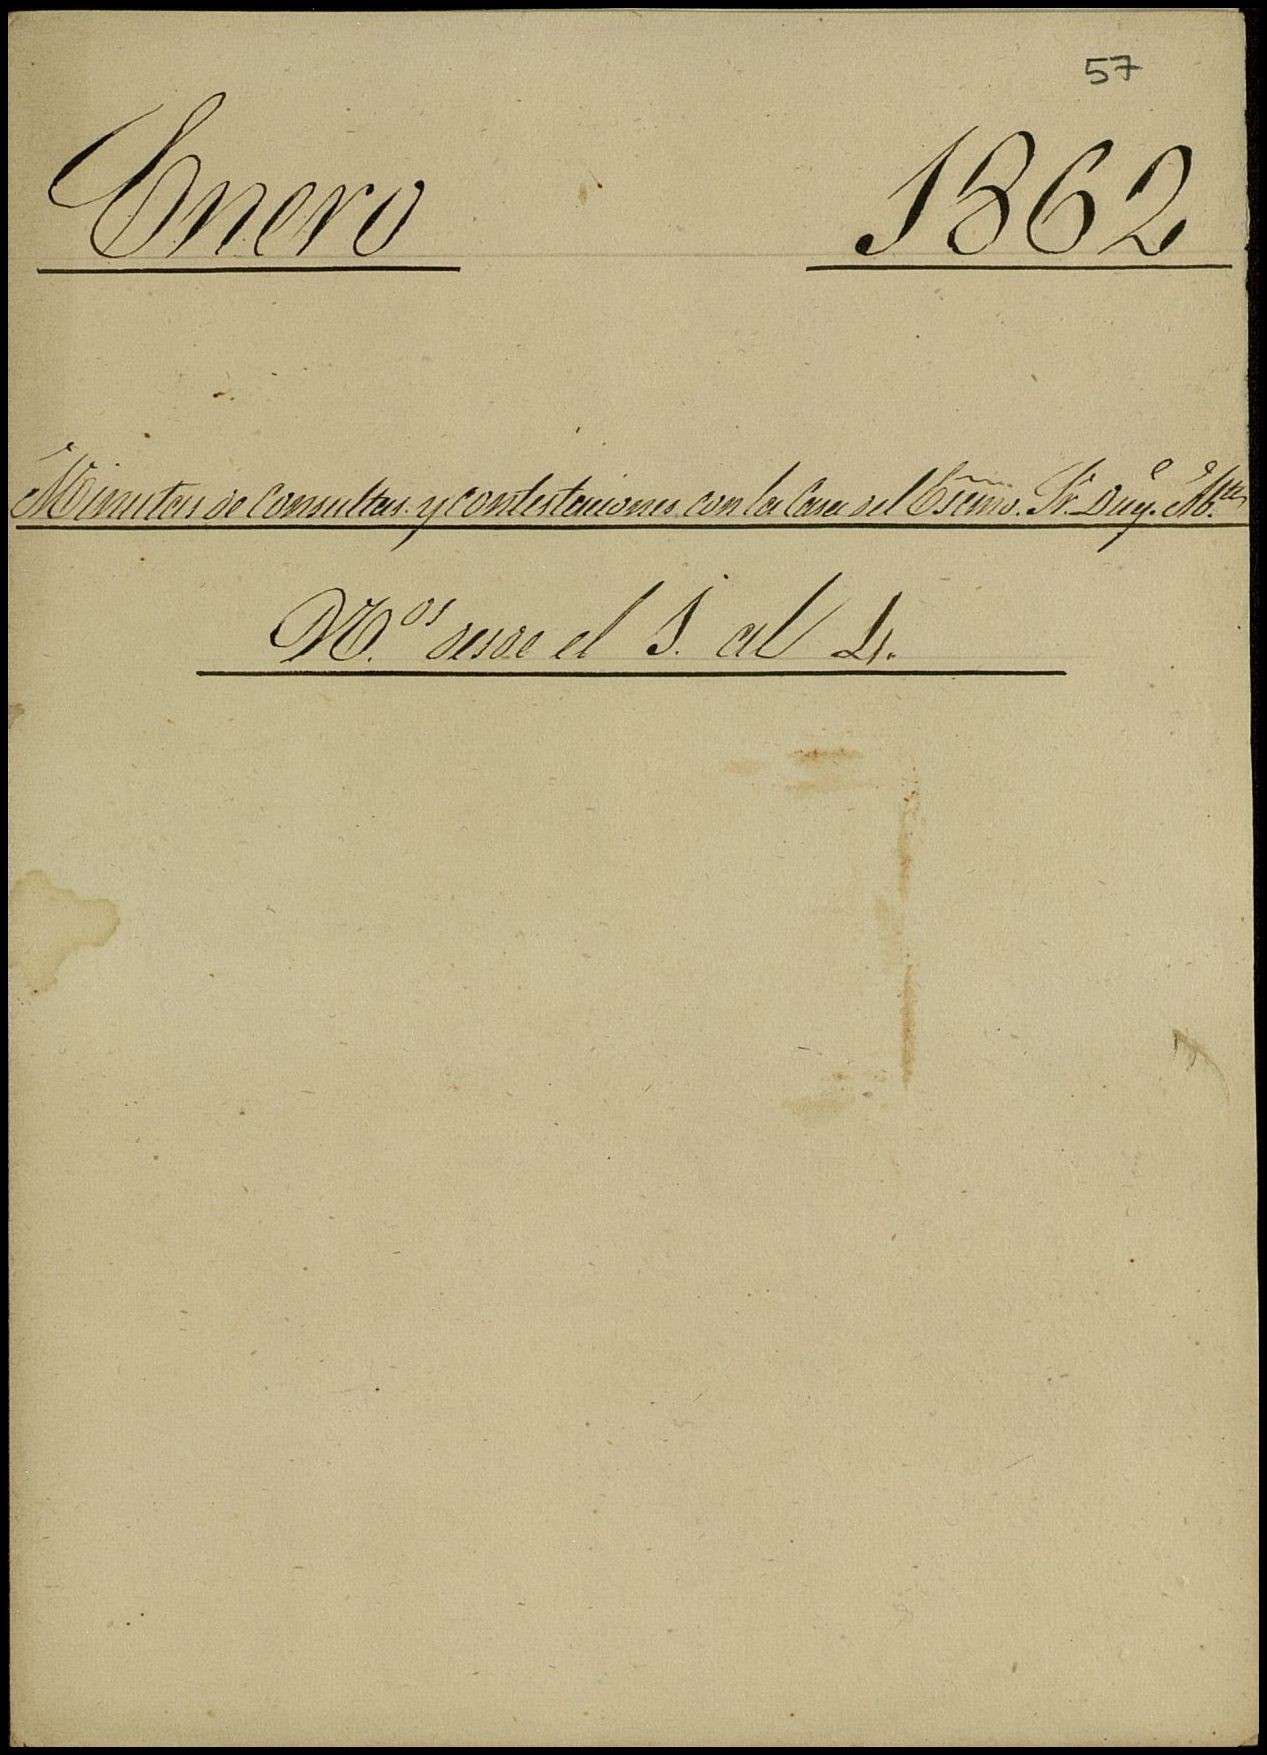 57
Enero 1862
Minutas de consultas y contestaciones con la Casa del Escmo. Sr. Duq.e
N.os desde el 1. al 4.